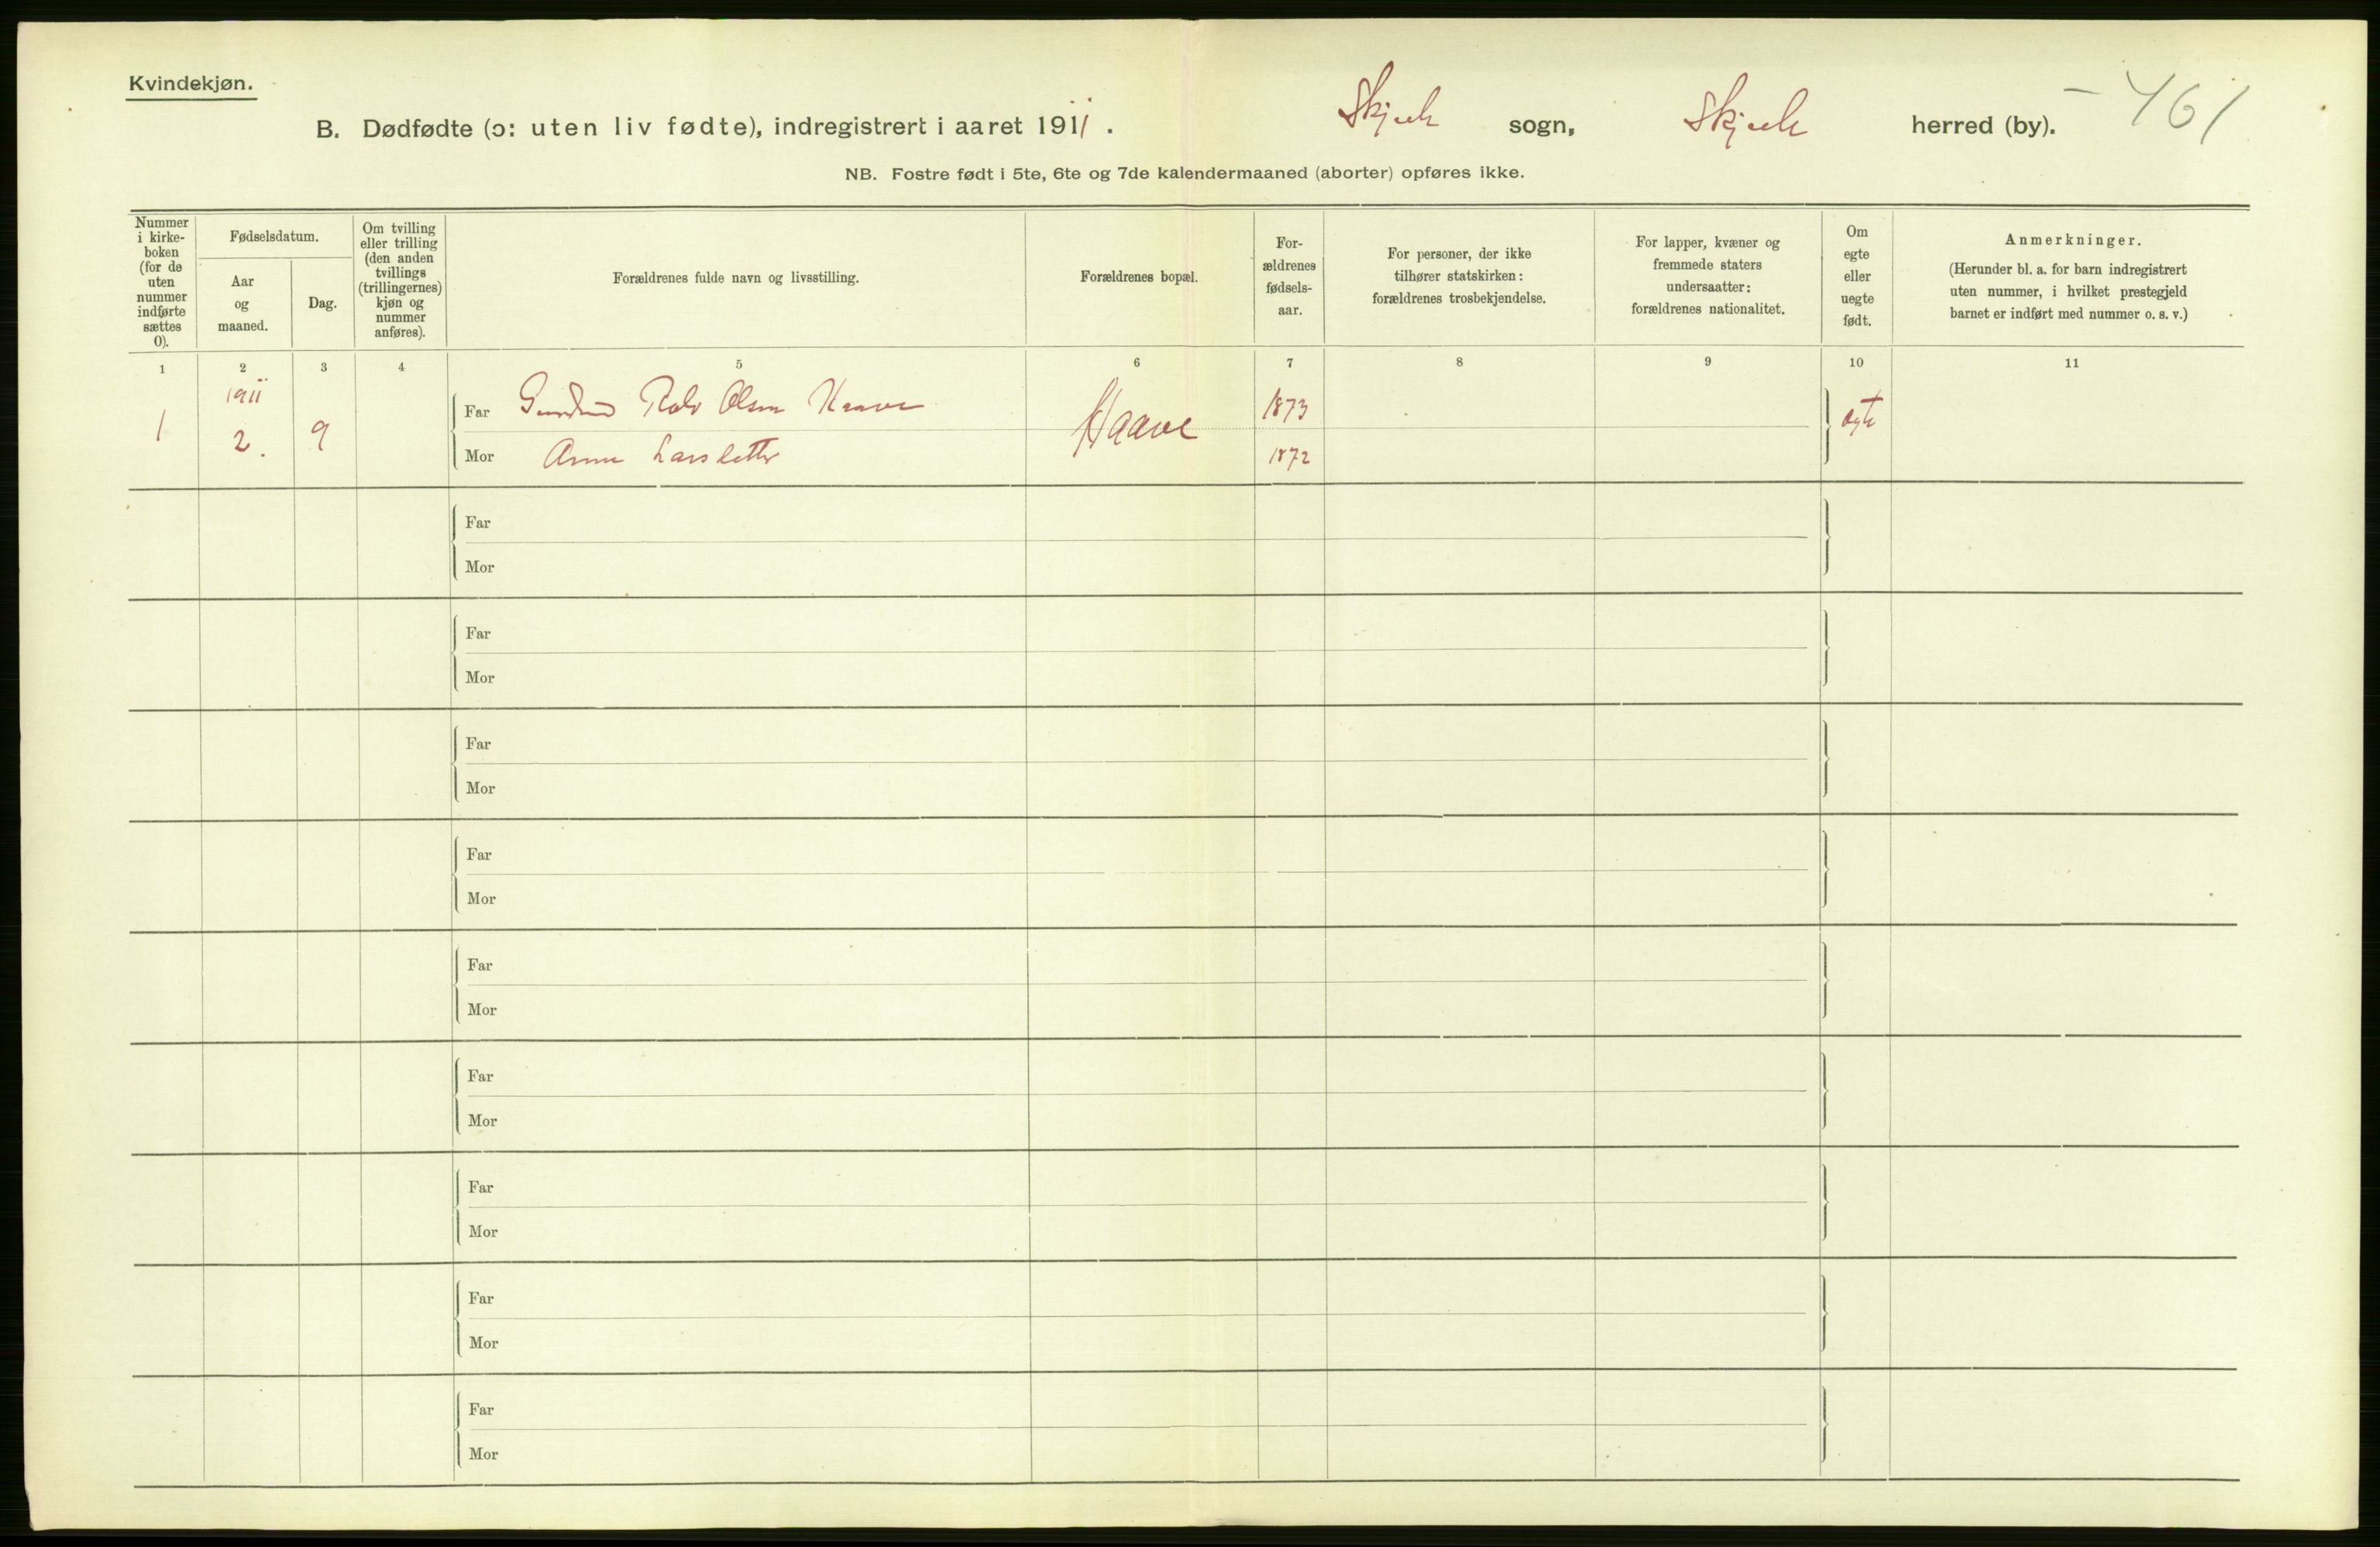 Kvindekjøn.
B. Dødfødte (ɔ: uten liv fødte), indregistrert i aaret 1911.
sogn,
herred (by).
461
NB. Fostre født i 5te, 6te og 7de kalendermaaned (aborter) opføres ikke.
Nummer
i kirke-
boken
(for de
uten
nummer
indførte
sættes
0).
Fødselsdatum.
Aar
og
maaned.
Dag.
Om tvilling
eller trilling
(den anden
tvillings
(trillingernes)
kjøn og
nummer
anføres).
Forældrenes fulde navn og livsstilling.
Forældrenes bopæl.
For-
ældrenes
fødsels-
aar.
For personer, der ikke
tilhører statskirken:
forældrenes trosbekjendelse.
For lapper, kvæner og
fremmede staters
undersaatter:
forældrenes nationalitet.
Om
egte
eller
uegte
født.
Anmerkninger.
(Herunder bl. a. for barn indregistrert
uten nummer, i hvilket prestegjeld
barnet er indført med nummer o. s. v.)
1 2 3 4 5 6 7 8 9 10 11
1911
1 2. 9
Far Olsen Haave
Haave
1873
egte
Mor Anna Larsdatter
1872
Far
Mor
Far
Mor
Far
Mor
Far
Mor
Far
Mor
Far
Mor
Far
Mor
Far
Mor
Far
Mor